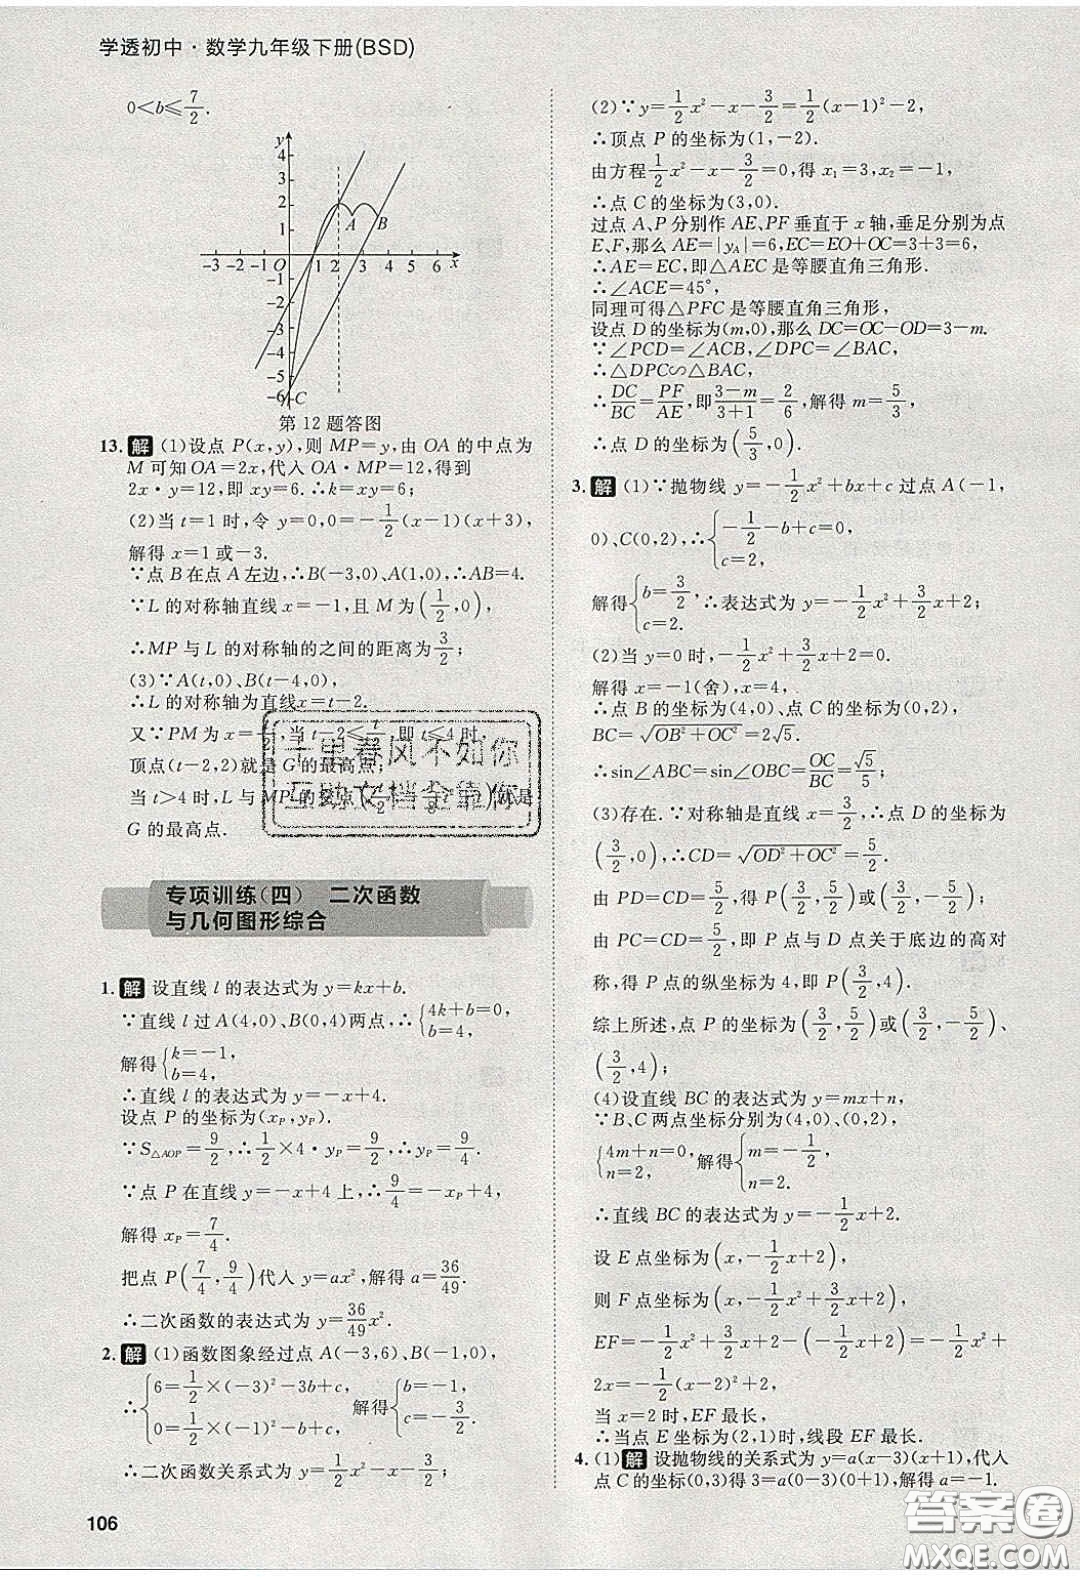 学透初中·数学九年级下册(BSD)
0<b≤7/2.
y
4
3
2
1
-3 -2 -1 O 1 2 3 4 5 6 x
A B
-1
-2
-3
-4
-5
-6 C
第12题答图
13. 解 (1)设点 P(x,y),则 MP=y,由 OA 的中点为
M 可知OA=2x,代入 OA·MP=12,得到
2x·y=12,即 xy=6.∴k=xy=6;
(2)当 t=1 时,令 y=0,0=-1/2(x-1)(x+3),
解得 x=1 或-3.
∵点 B 在点 A 左边,∴B(-3,0)、A(1,0),∴AB=4.
∵L 的对称轴直线 x=-1,且 M 为(1/2,0),
∴MP 与 L 的对称轴的之间的距离为3/2;
(3)∵A(t,0)、B(t-4,0),
∴L 的对称轴为直线x=t-2.
又∵PM 为 x=t/2,当 t-2≤t/2,即 t≤4 时,
顶点(t-2,2)就是 G 的最高点;
当 t>4 时,L 与 MP 的交点
就是
G 的最高点.
千里春风不如你
互助文档全靠你
专项训练(四) 二次函数
与几何图形综合
1. 解 设直线 l 的表达式为 y=kx+b.
∵直线 l 过 A(4,0)、B(0,4)两点,∴{4k+b=0, b=4,
解得{k=-1, b=4,
∴直线 l 的表达式为 y=-x+4.
设点 P 的坐标为(xP,yP).
∵S△AOP=9/2,∴1/2×4·yP=9/2,∴yP=9/4.
∵点 P 在直线 y=-x+4 上,∴9/4=-xP+4,
解得 xP=7/4.
把点 P(7/4,9/4)代入 y=ax²,解得 a=36/49.
∴二次函数的表达式为 y=36/49x².
2. 解 (1)函数图象经过点 A(-3,6)、B(-1,0),
∴{6=1/2×(-3)²-3b+c, 0=1/2×(-1)²-b+c, 解得{b=-1, c=-3/2.
∴二次函数关系式为 y=1/2x²-x-3/2.
106
(2)∵y=1/2x²-x-3/2=1/2(x-1)²-2,
∴顶点 P 的坐标为(1,-2).
由方程1/2x²-x-3/2=0,得 x₁=3,x₂=-1,
∴点 C 的坐标为(3,0).
过点 A、P 分别作 AE、PF 垂直于 x 轴,垂足分别为点
E、F,那么 AE=|yA|=6,EC=EO+OC=3+3=6,
∴AE=EC,即△AEC 是等腰直角三角形.
∴∠ACE=45°,
同理可得△PFC 是等腰直角三角形,
设点 D 的坐标为(m,0),那么 DC=OC-OD=3-m.
∵∠PCD=∠ACB,∠DPC=∠BAC,
∴△DPC∽△BAC,
∴DC/BC=PF/AE,即3-m/3+1=2/6,解得 m=5/3,
∴点 D 的坐标为(5/3,0).
3. 解 (1)∵抛物线 y=-1/2x²+bx+c 过点 A(-1,
0)、C(0,2),∴{-1/2-b+c=0, c=2,
解得{b=3/2, c=2. ∴表达式为 y=-1/2x²+3/2x+2;
(2)当 y=0 时,-1/2x²+3/2x+2=0.
解得 x=-1(舍),x=4.
∴点 B 的坐标为(4,0)、点 C 的坐标为(0,2),
BC=√OB²+OC²=2√5.
∴sin∠ABC=sin∠OBC=OC/BC=√5/5;
(3)存在.∵对称轴是直线 x=3/2,∴点 D 的坐标为
(3/2,0),∴CD=√OD²+OC²=5/2,
由 PD=CD=5/2,得 P(3/2,5/2)或(3/2,-5/2);
由 PC=CD=5/2,即 P 点与 D 点关于底边的高对
称,得 P 点的纵坐标为 4,即 P(3/2,4).
综上所述,点 P 的坐标为(3/2,5/2)或(3/2,-5/2)、
(3/2,4);
(4)设直线 BC 的表达式为 y=mx+n,
∵B、C 两点坐标分别为(4,0)、(0,2),
{4m+n=0, n=2, 解得{m=-1/2, n=2.
∴直线 BC 的表达式为 y=-1/2x+2.
设 E 点坐标为(x,-1/2x+2),
则 F 点坐标为(x,-1/2x²+3/2x+2),
EF=-1/2x²+3/2x+2-(-1/2x+2)=-1/2x²+
2x=-1/2(x-2)²+2,
当 x=2 时,EF 最长,
∴当点 E 坐标为(2,1)时,线段 EF 最长.
4. (1)解 设抛物线的关系式为 y=a(x-3)(x+1),代入
点 C 的坐标(0,3)得 3=a(0-3)(0+1),解得 a=-1.
答案圈
MXQE.COM